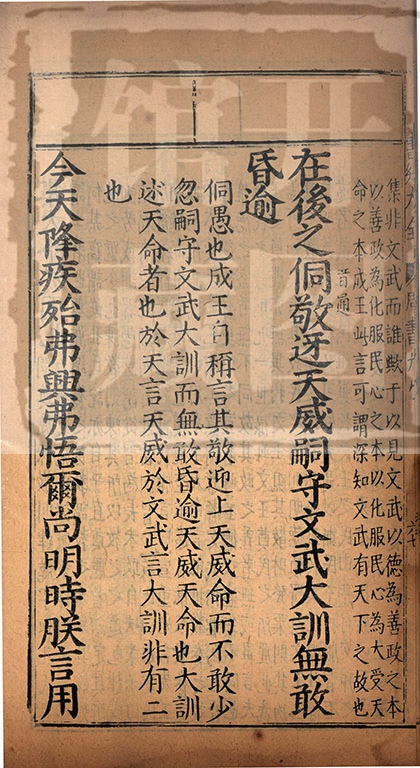 集非文武而誰歟于以見文武以德為善政之本
以善政為化服民心之本以化服民心為大受天
命之本成王此言可謂深知文武有天下之故也
音通
在後之侗敬迓天威嗣守文武大訓無敢
昏逾
侗愚也成王自稱言其敬迎上天威命而不敢少
忽嗣守文武大訓而無敢昏逾天威天命也大訓
述天命者也於天言天威於文武言大訓非有二
也
今天降疾殆弗興弗悟爾尚明時朕言用